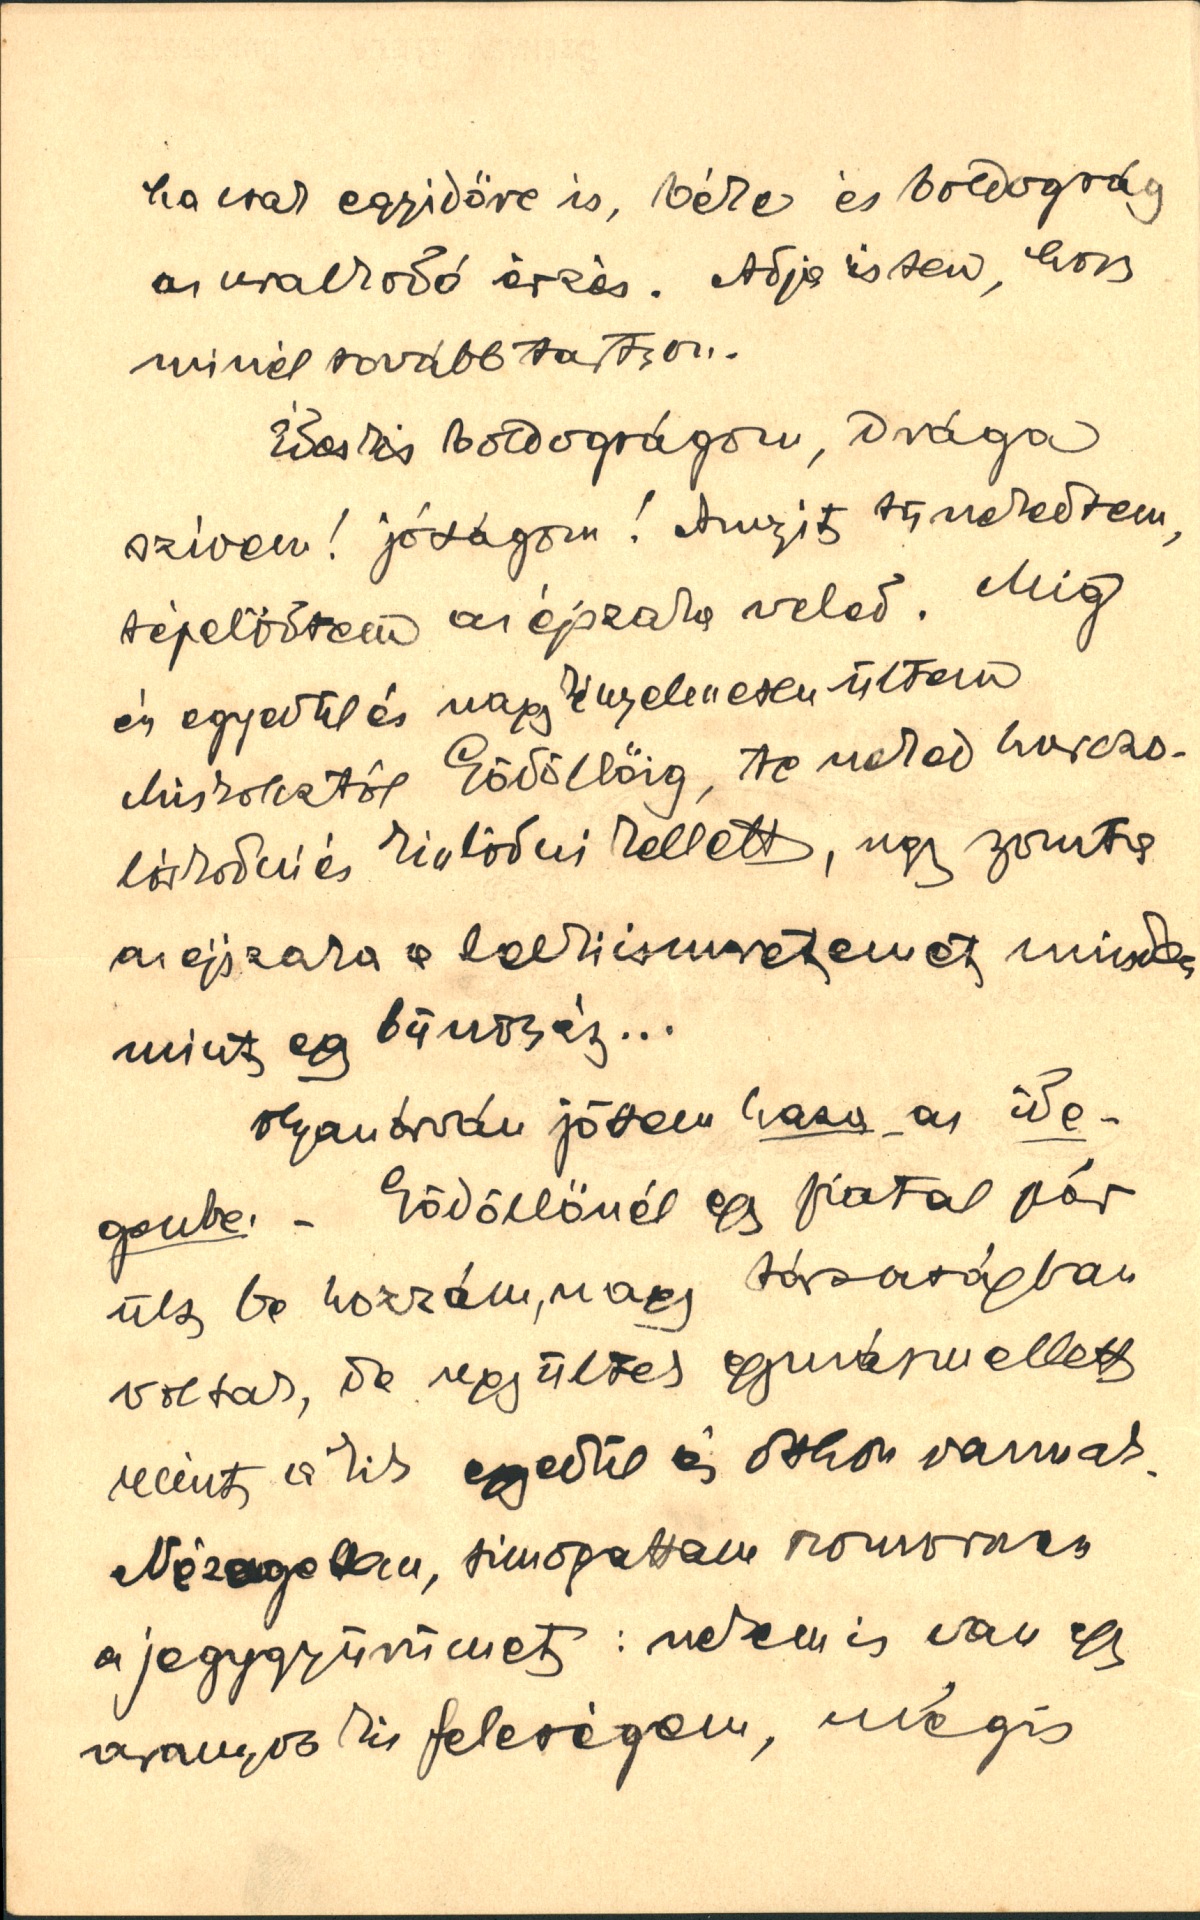 ha csak egyidőre is, béke és boldogság
az uralkodó érzés. Adja isten, hogy
minél tovább tartson.
Édes kis boldogságom, drága
szívem! jóságom! Annyit tünekedtem,
tépelődtem az éjszaka veled. Mig
én egyedül és nagy kényelmesen ültem
Miskolcztól Gödöllőig, te neked hurczo-
lóskodni és kinlódni kellett, ugy zomta
az éjszaka a lelkiismeretemet mindez
mint egy bünözéz...
Olyan árván jöttem haza az ide-
genbe. - Gödöllőnél egy fiatal pár
ült be hozzám, nagy társaságban
voltak, de ugy ültek egymás mellett
mint a kik egyedül és otthon vannak.
Nézegettem, simogattam szomoruan
a jegygyürümet: nekem is van egy
aranyos kis feleségem, mégis